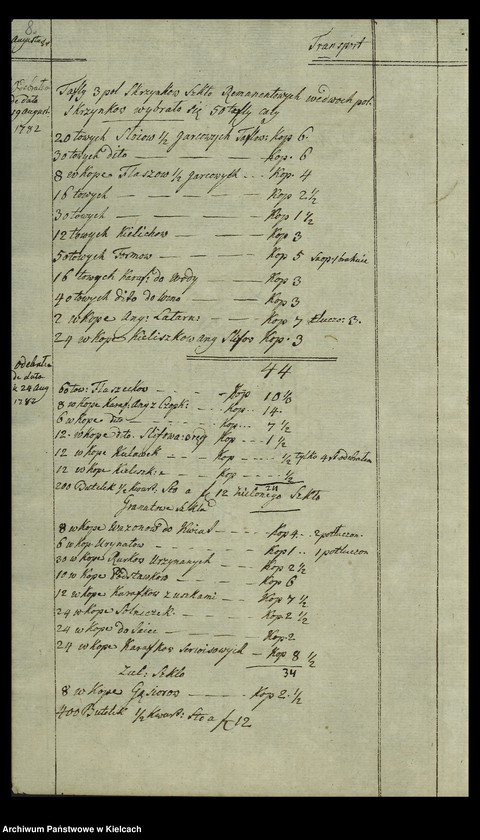 8.
Augusti
Transport
de data
19 august.
1782
Tafly 3 pol Skrzynkow Szkła Remanentowych wedwoch pol.
Skrzynkow wybrało się 50 tafly cały
20 towych Słoiow 1/2 garcowych Kop 6.
30 towych dito — — — Kop. 6
8 w Kope Flaszow 1/2 garcowych - - - Kop. 4
16 towych — — — — Kop 2 1/2
30 towych — — — — Kop 1 1/2
12 towych Kielichow — — Kop 3
50 towych Formow — — — Kop 5
16 towych Karaf: do Wody — Kop 3
40 towych dito do Wina — Kop 3
2 w Kope Ang: Latarn: — Kop 7 tłuczo: 3.
24 w Kope Kieliszkow ang Slifow Kop. 3
44
de data
24 Aug
1782
60 tow: Flaszeczkow - - - Kop 10 1/3
8 w Kope Karaf: Ang z Czopk: - - - Kop. 14.
6 w Kope dito - - - Kop... 7 1/2
12. w Kope dito. Slifowa: Kop — 1 1/2
12 w Kope Kulawek - - - Kop - - - 1/2 tylko 4
12 w Kope Kieliszk: - - Kop - - - 1/2
200 Butelek 1/2 Kwart. Sto a f 12 zielonego Szkło
Granatowe Szkło
8 w Kope Wazonow do Kwiat - - - Kop 4. - 2 potłuczon
6 w Kop. Urynałow - - - Kop 1 .. 1 potłuczon
30 w Kope Rurkow Urzynanych - - Kop 2 1/2
10 w Kope Podstawkow - - - Kop 6
12 w Kope Karafkow z uszkami - - Kop 7 1/2
24 w Kope Solniczek. - - - Kop 2 1/2
24 w Kope do Swiec - - - Kop 2
24 w Kope Karafkow Serwisowych - Kop 8 1/2
34
Ziel: Szkło
8 w Kope Gąsiorow - - - Kop 2. 1/2
400 Butelek 1/2 Kwart: Sto a f 12
Archiwum Państwowe w Kielcach